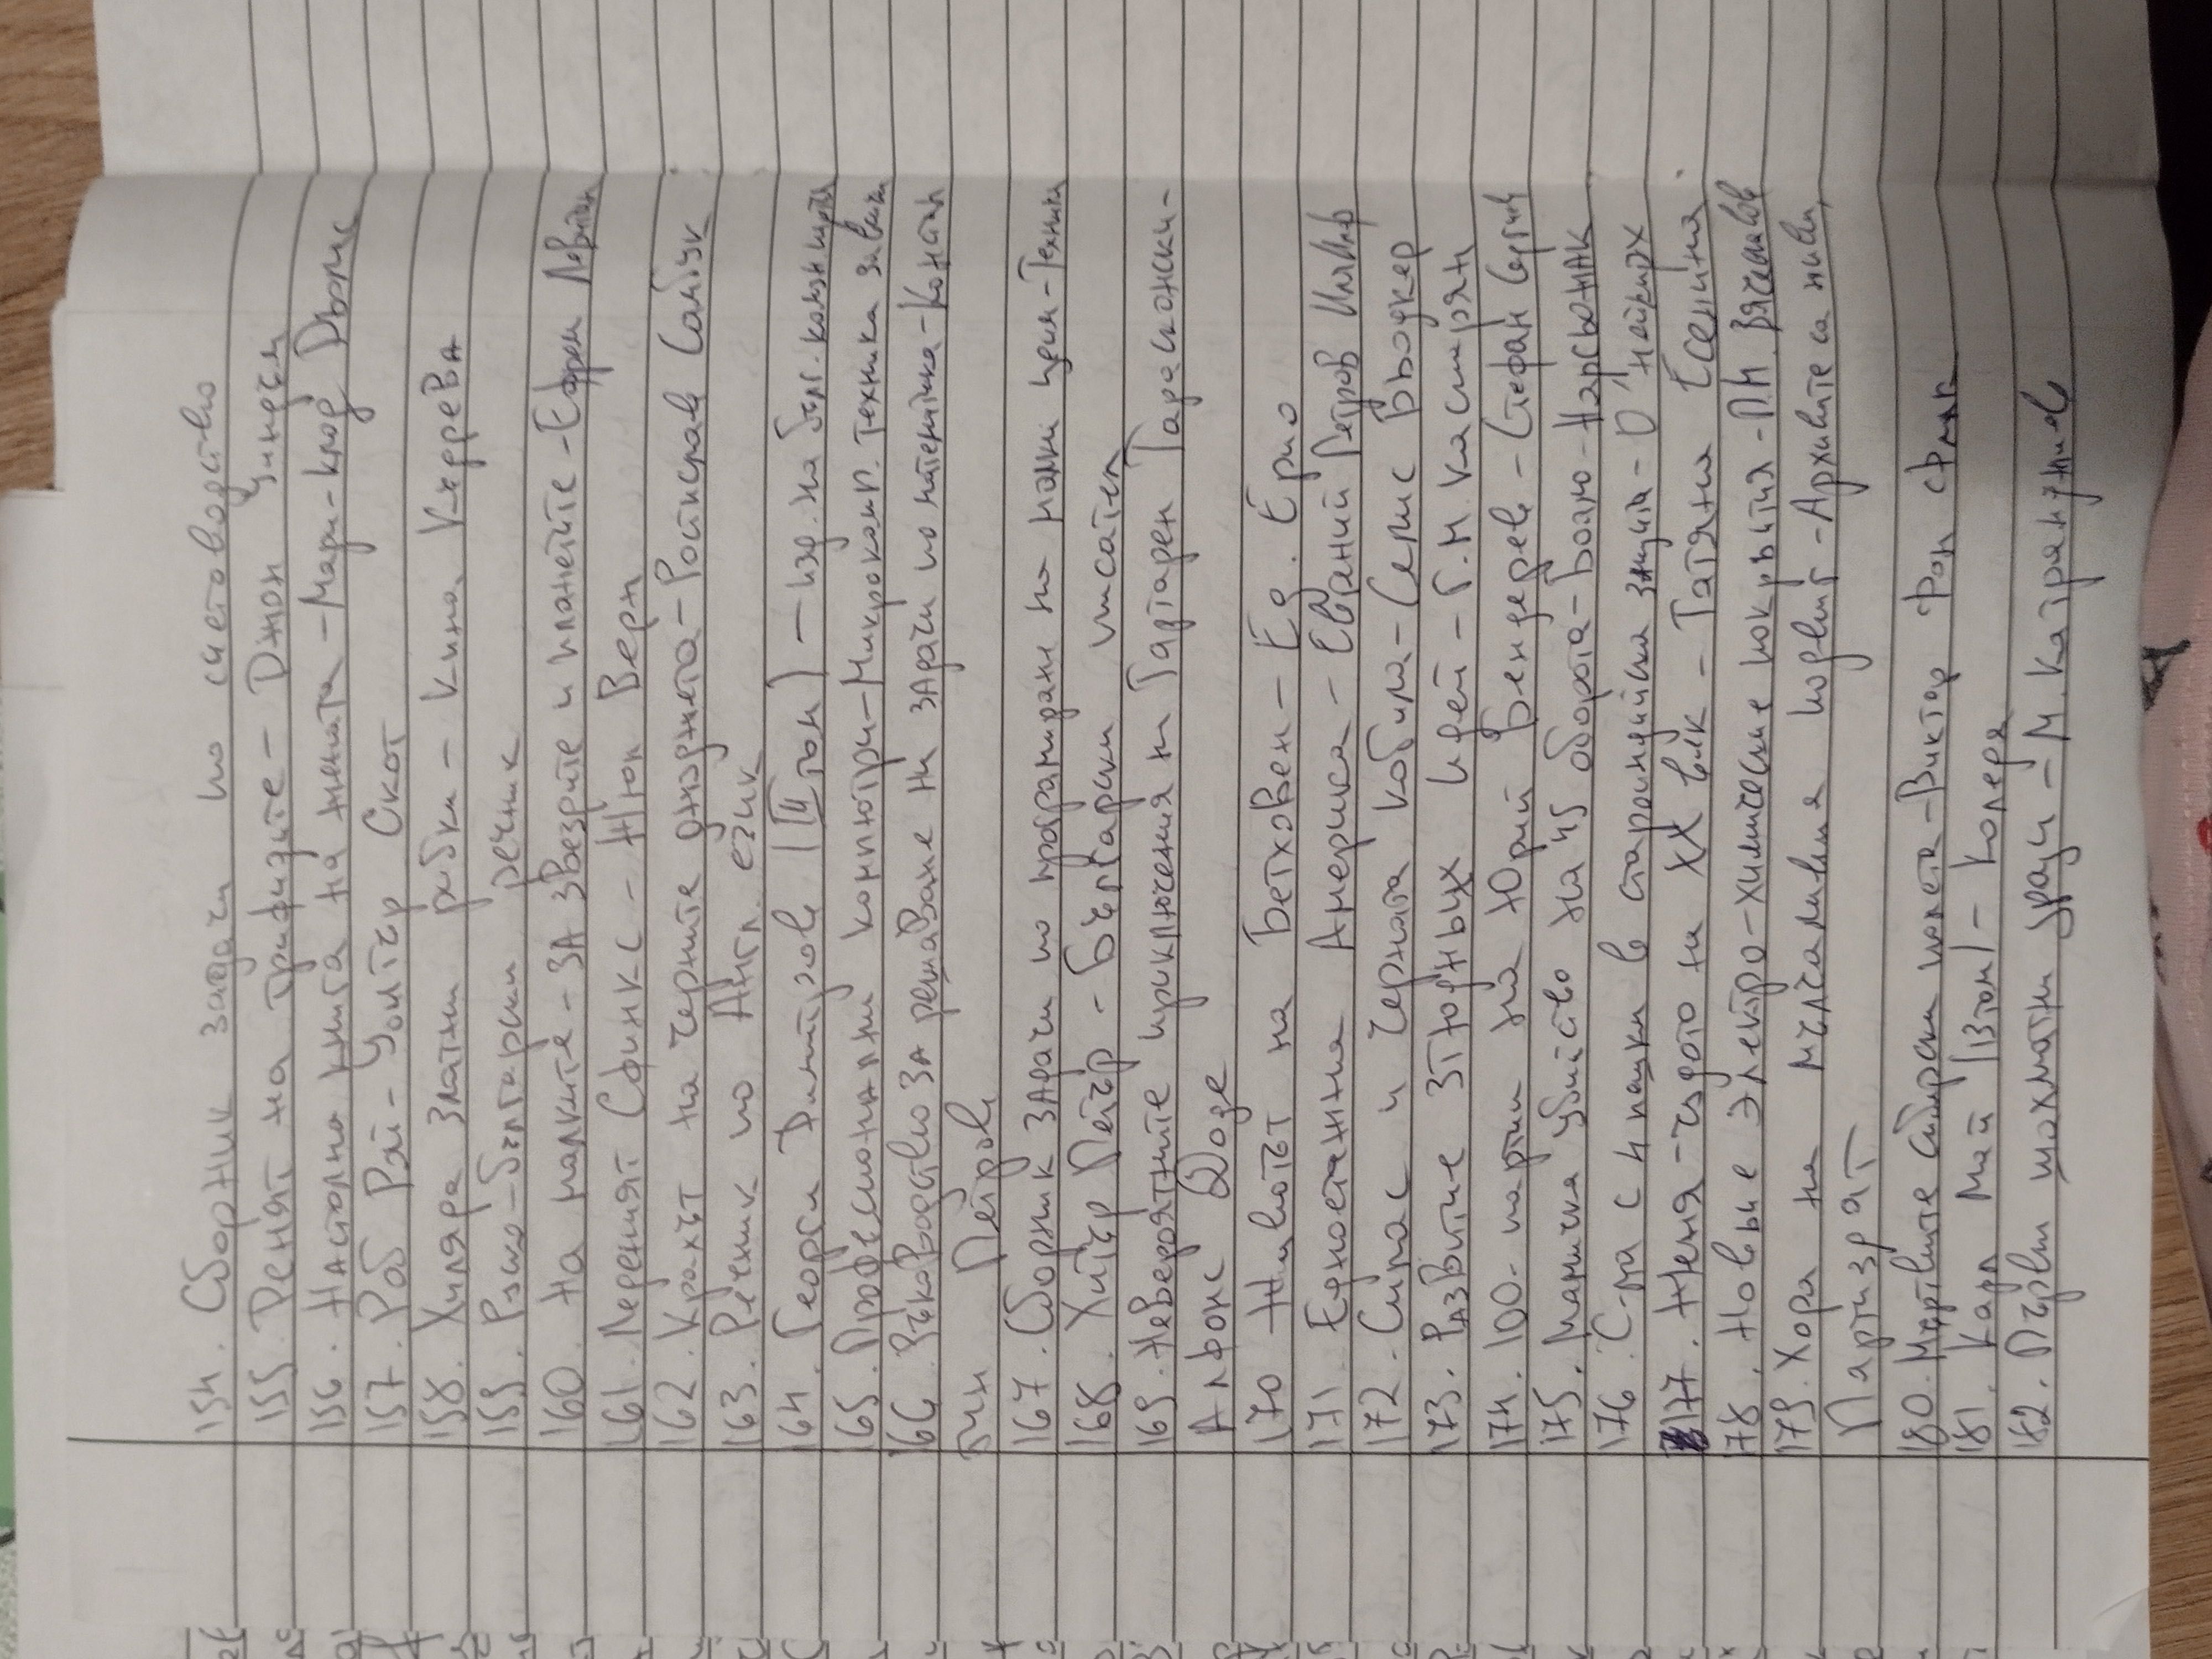 154. Сборник задачи по счетоводство
155. Денят на трифидите - Джон Уиндъм
156. Настолна книга на жената - Мари-Клод Дьомс
157. Роб Рой - Уолтър Скот
158. Хиляда златни рибки - Кина Къдрева
159. Руско-български речник
160. На малките - за звездите и планетите - Ефрем Левитан
161. Леденият Сфинкс - Жюл Верн
162. Крахът на черните djинджета - Ростислав Самбук
163. Речник по Англ. език
164. Георги Димитров (III том) - изд. на бълг. комунисти
165. Професионални компютри - Микрокомп. техника за всички
166. Ръководство за решаване на задачи по математика - Константин
Петров
167. Сборник задачи по програмиране на малки цели - Техника
168. Хитър Петър - Български писател
169. Невероятните приключения на Тартарен Тарасконски -
Алфонс Доде
170 Животът на Бетховен - Ед. Ерио
171. Едноетажна Америка - Евгений Петров Иля Илф
172. Сирас и черната кобила - Семис Бьодкер
173. Развитие этюдных идей - Г. М. Каспарян
174. 100 - партии на Юрий Бендерев - Стефан Сергиев
175. Малника убийство на 45 оборота - Боало - Нарсьожак
176. С-ма с 4 пешки в староиндийска защита - О' Нейкирх
177. Женя - чудото на XX век - Татяна Есенина
178. Новые электро-химические покрытия - П.М. Вячеславов
179. Хора на мълчаливия подвиг - Архивите са живи,
Партиздат
180. Мъртвите сибирски полета - Виктор Фон Фалк
181. Карл Май (3 том) - Колеря
182. Първи шахматни задачи - М. Катранджиев